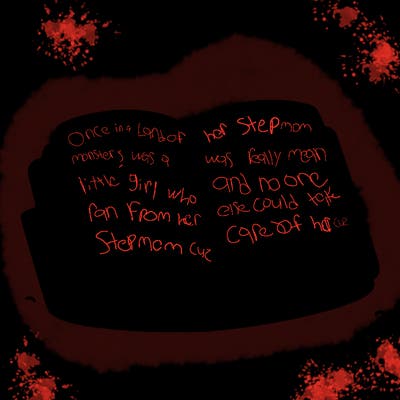 Once in a Land of
monsters was a
little girl who
ran From her
Stepmom cuz
her Stepmom
was Really mean
and no one
else could take
care of her